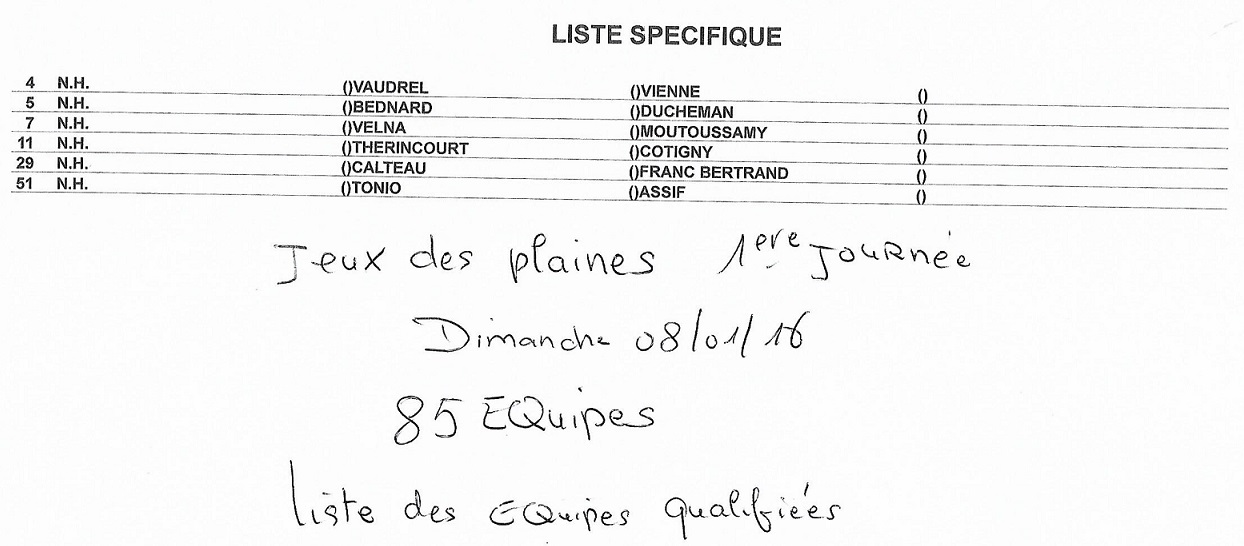 LISTE SPECIFIQUE
4 N.H. ()VAUDREL ()VIENNE ()
5 N.H. ()BEDNARD ()DUCHEMAN ()
7 N.H. ()VELNA ()MOUTOUSSAMY ()
11 N.H. ()THERINCOURT ()COTIGNY ()
29 N.H. ()CALTEAU ()FRANC BERTRAND ()
51 N.H. ()TONIO ()ASSIF ()
Jeux des plaines 1ere Journée
Dimanche 08/01/16
85 EQuipes
liste des EQuipes qualifiées